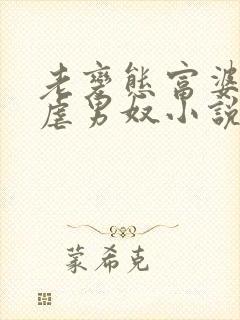 老變態富婆
虐男奴小說
蒙希克